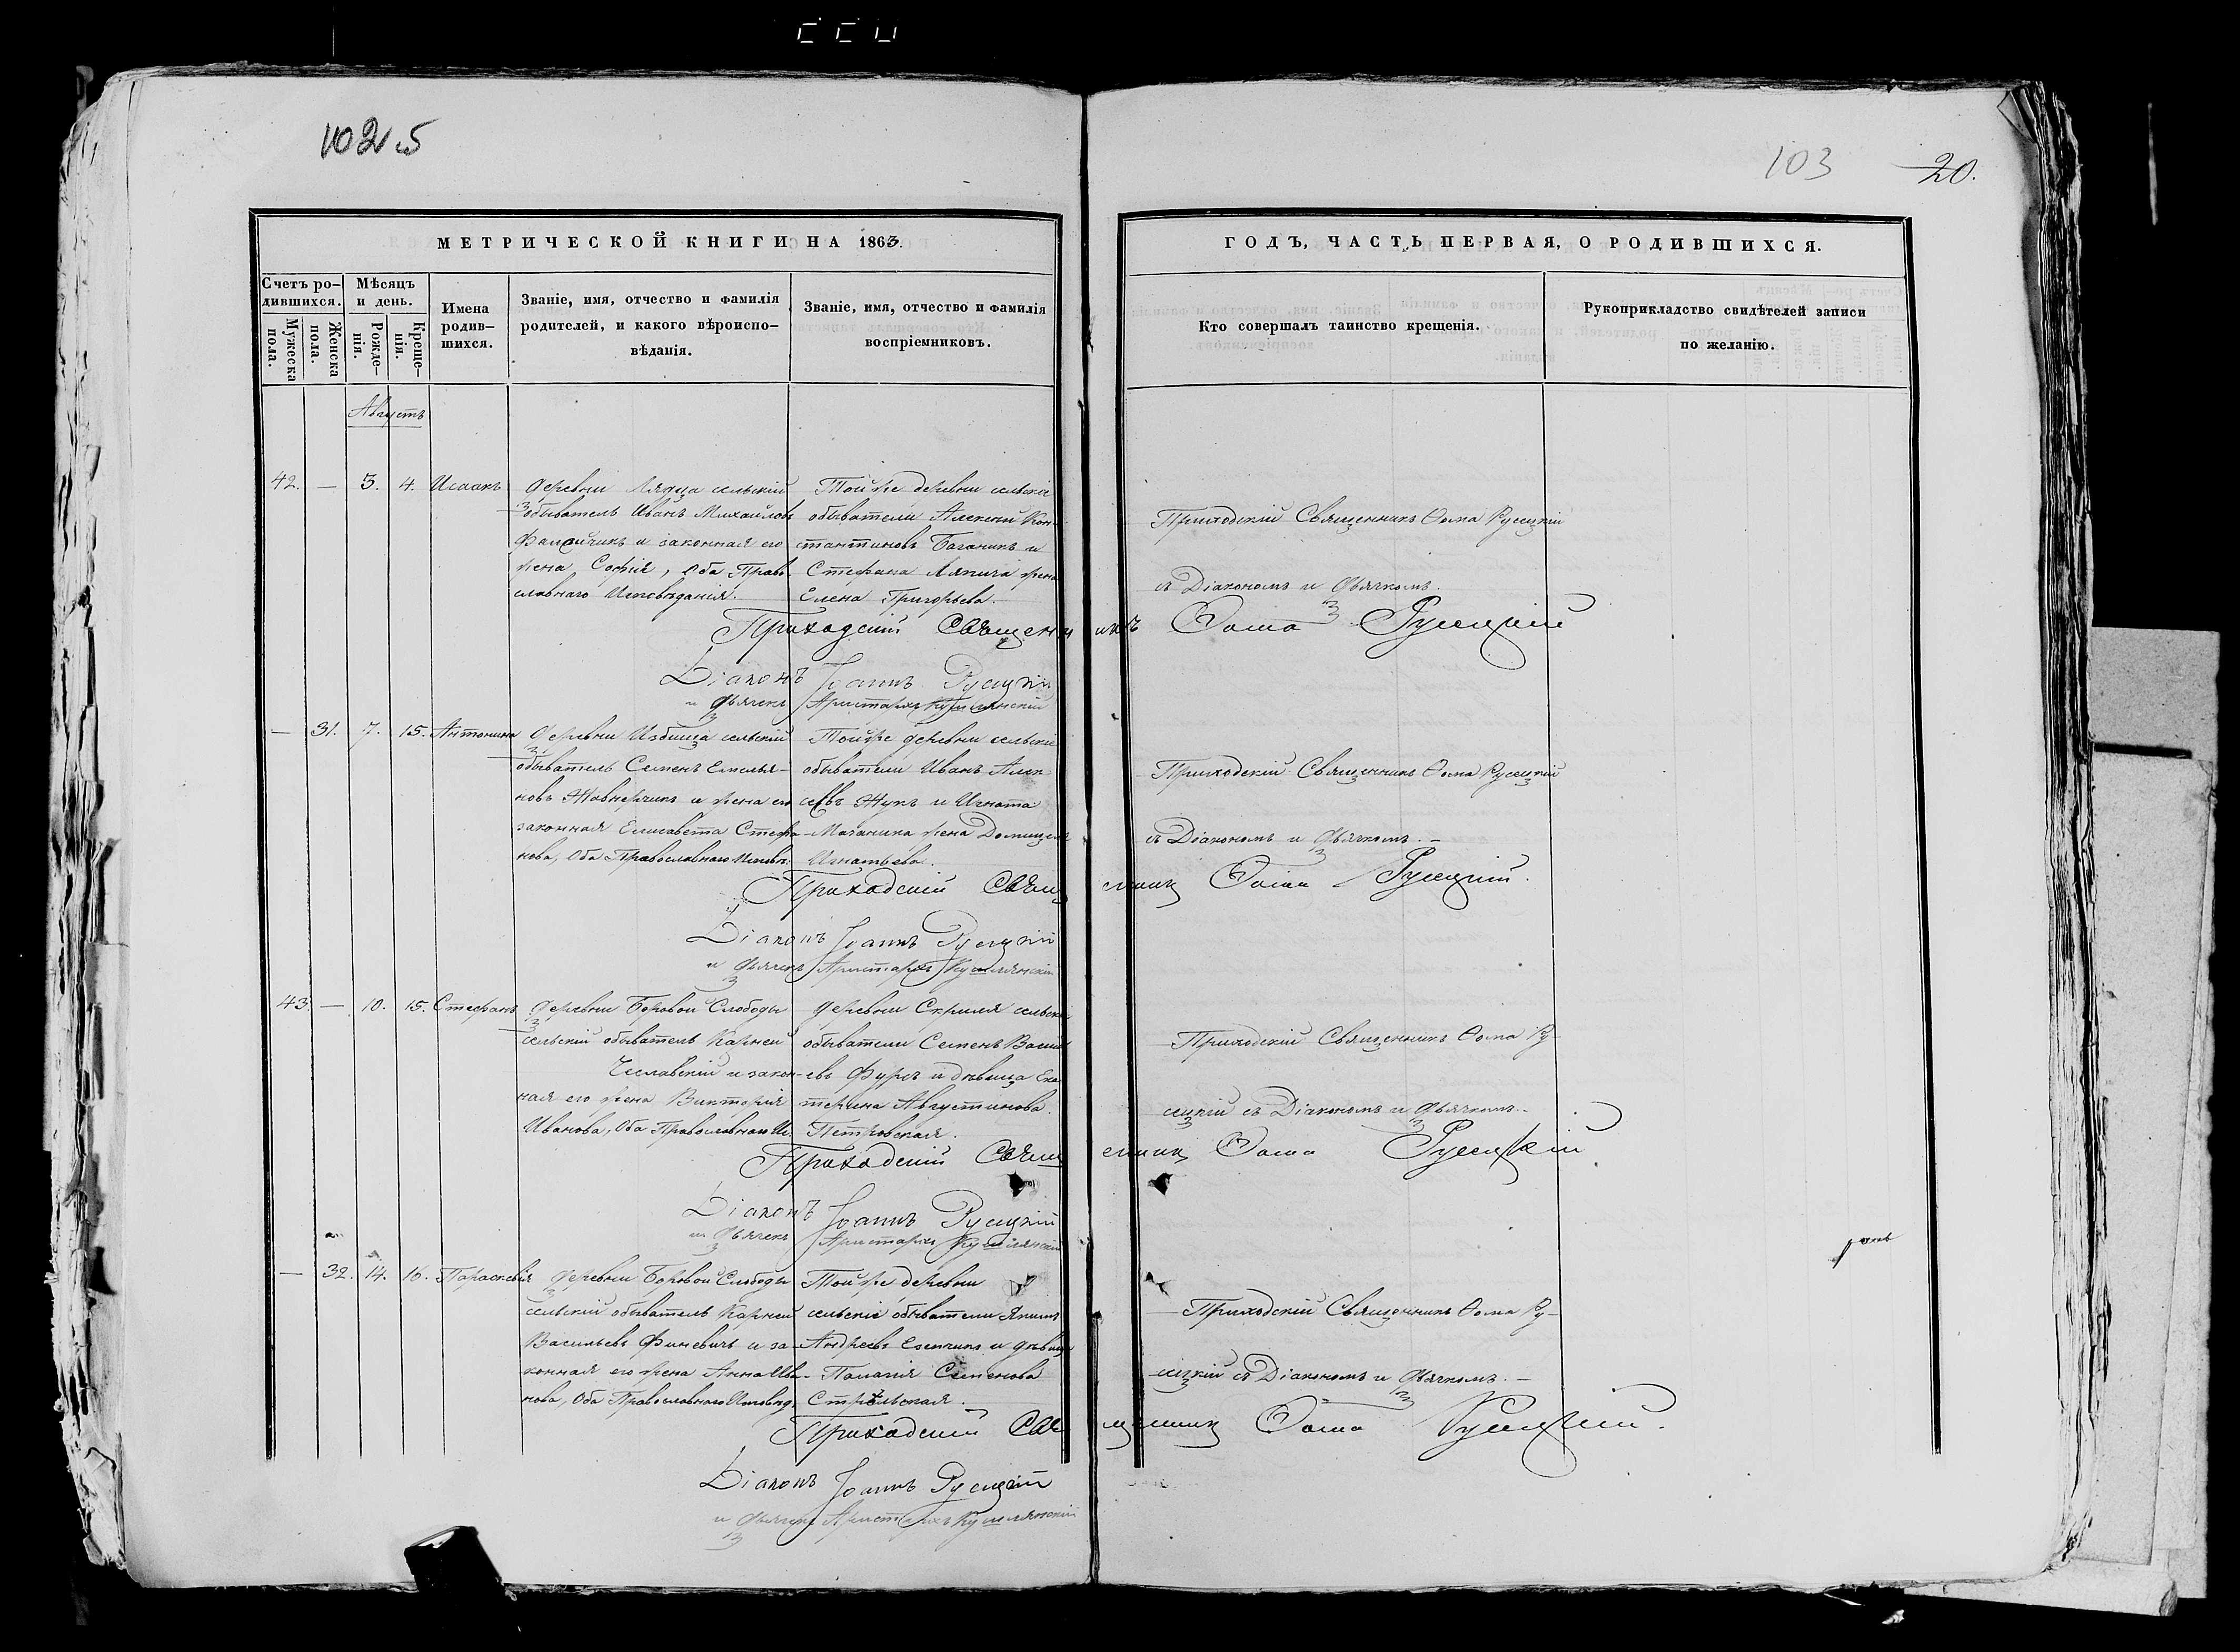 103
20.
МЕТРИЧЕСКОЙ КНИГИ НА 1863.
Счетъ ро-
дившихся.
Мужеска
пола.
Женска
пола.
Мѣсяцъ
и день.
Рожде-
нія.
Креще-
нія.
Имена
родив-
шихся.
Званіе, имя, отчество и фамилія
родителей, и какого вѣроиспо-
вѣданія.
Званіе, имя, отчество и фамилія
воспріемниковъ.
ГОДЪ, ЧАСТЬ ПЕРВАЯ, О РОДИВШИХСЯ.
Кто совершалъ таинство крещенія.
Рукоприкладство свидѣтелей записи
по желанію.
Августъ
42. — 3. 4. Исаакъ
деревни сельскій
обыватель Иванъ Михайловъ
и законная его
жена Софія, оба Право-
славнаго Исповѣданія.
Той же деревни сельскіе
обыватели Алексѣй Кон-
стантиновъ и
Стефана жена
Елена Григорьева.
Приходскій Священникъ Ѳома Русецкій
съ Діакономъ и Дьячкомъ.
Приходскій Священникъ Ѳома Русецкій
Діаконъ Іоаннъ Русецкій
и Дьячекъ Аристархъ
— 31. 7. 15. Антонина
Деревни Избища сельскій
обыватель Семенъ Емелья-
новъ и жена его
законная Елисавета Стефа-
нова, оба Православнаго Исповѣ.
Той же деревни сельскіе
обыватели Иванъ Алек-
сѣевъ Жукъ и Игната
жена
Игнатьева.
Приходскій Священникъ Ѳома Русецкій
съ Діакономъ и Дьячкомъ. —
Приходскій Священникъ Ѳома Русецкій.
Діаконъ Іоаннъ Русецкій
и Дьячекъ Аристархъ
43. — 10. 15. Стефанъ
деревни Боровой Слободы
сельскій обыватель Карней
и закон-
ная его жена Викторія
Иванова, оба Православнаго Ис.
деревни сельскіе
обыватели Семенъ Василь-
евъ Фурсъ и дѣвица Ека-
терина Августинова
Петровская.
Приходскій Священникъ Ѳома Ру-
сецкій съ Діакономъ и Дьячкомъ. —
Приходскій Священникъ Ѳома Русецкій
Діаконъ Іоаннъ Русецкій
и Дьячекъ Аристархъ
— 32. 14. 16. Параскевія
деревни Боровой Слободы
сельскій обыватель Карней
Васильевъ Финевичъ и за-
конная его жена Анна Ива-
нова, оба Православнаго Исповѣд.
Той же деревни
сельскіе обыватели Якимъ
Андреевъ и дѣвица
Палагія Семенова
Стрѣльская.
Приходскій Священникъ Ѳома Ру-
сецкій съ Діакономъ и Дьячкомъ. —
Приходскій Священникъ Ѳома Русецкій.
Діаконъ Іоаннъ Русецкій
и Дьячекъ Аристархъ